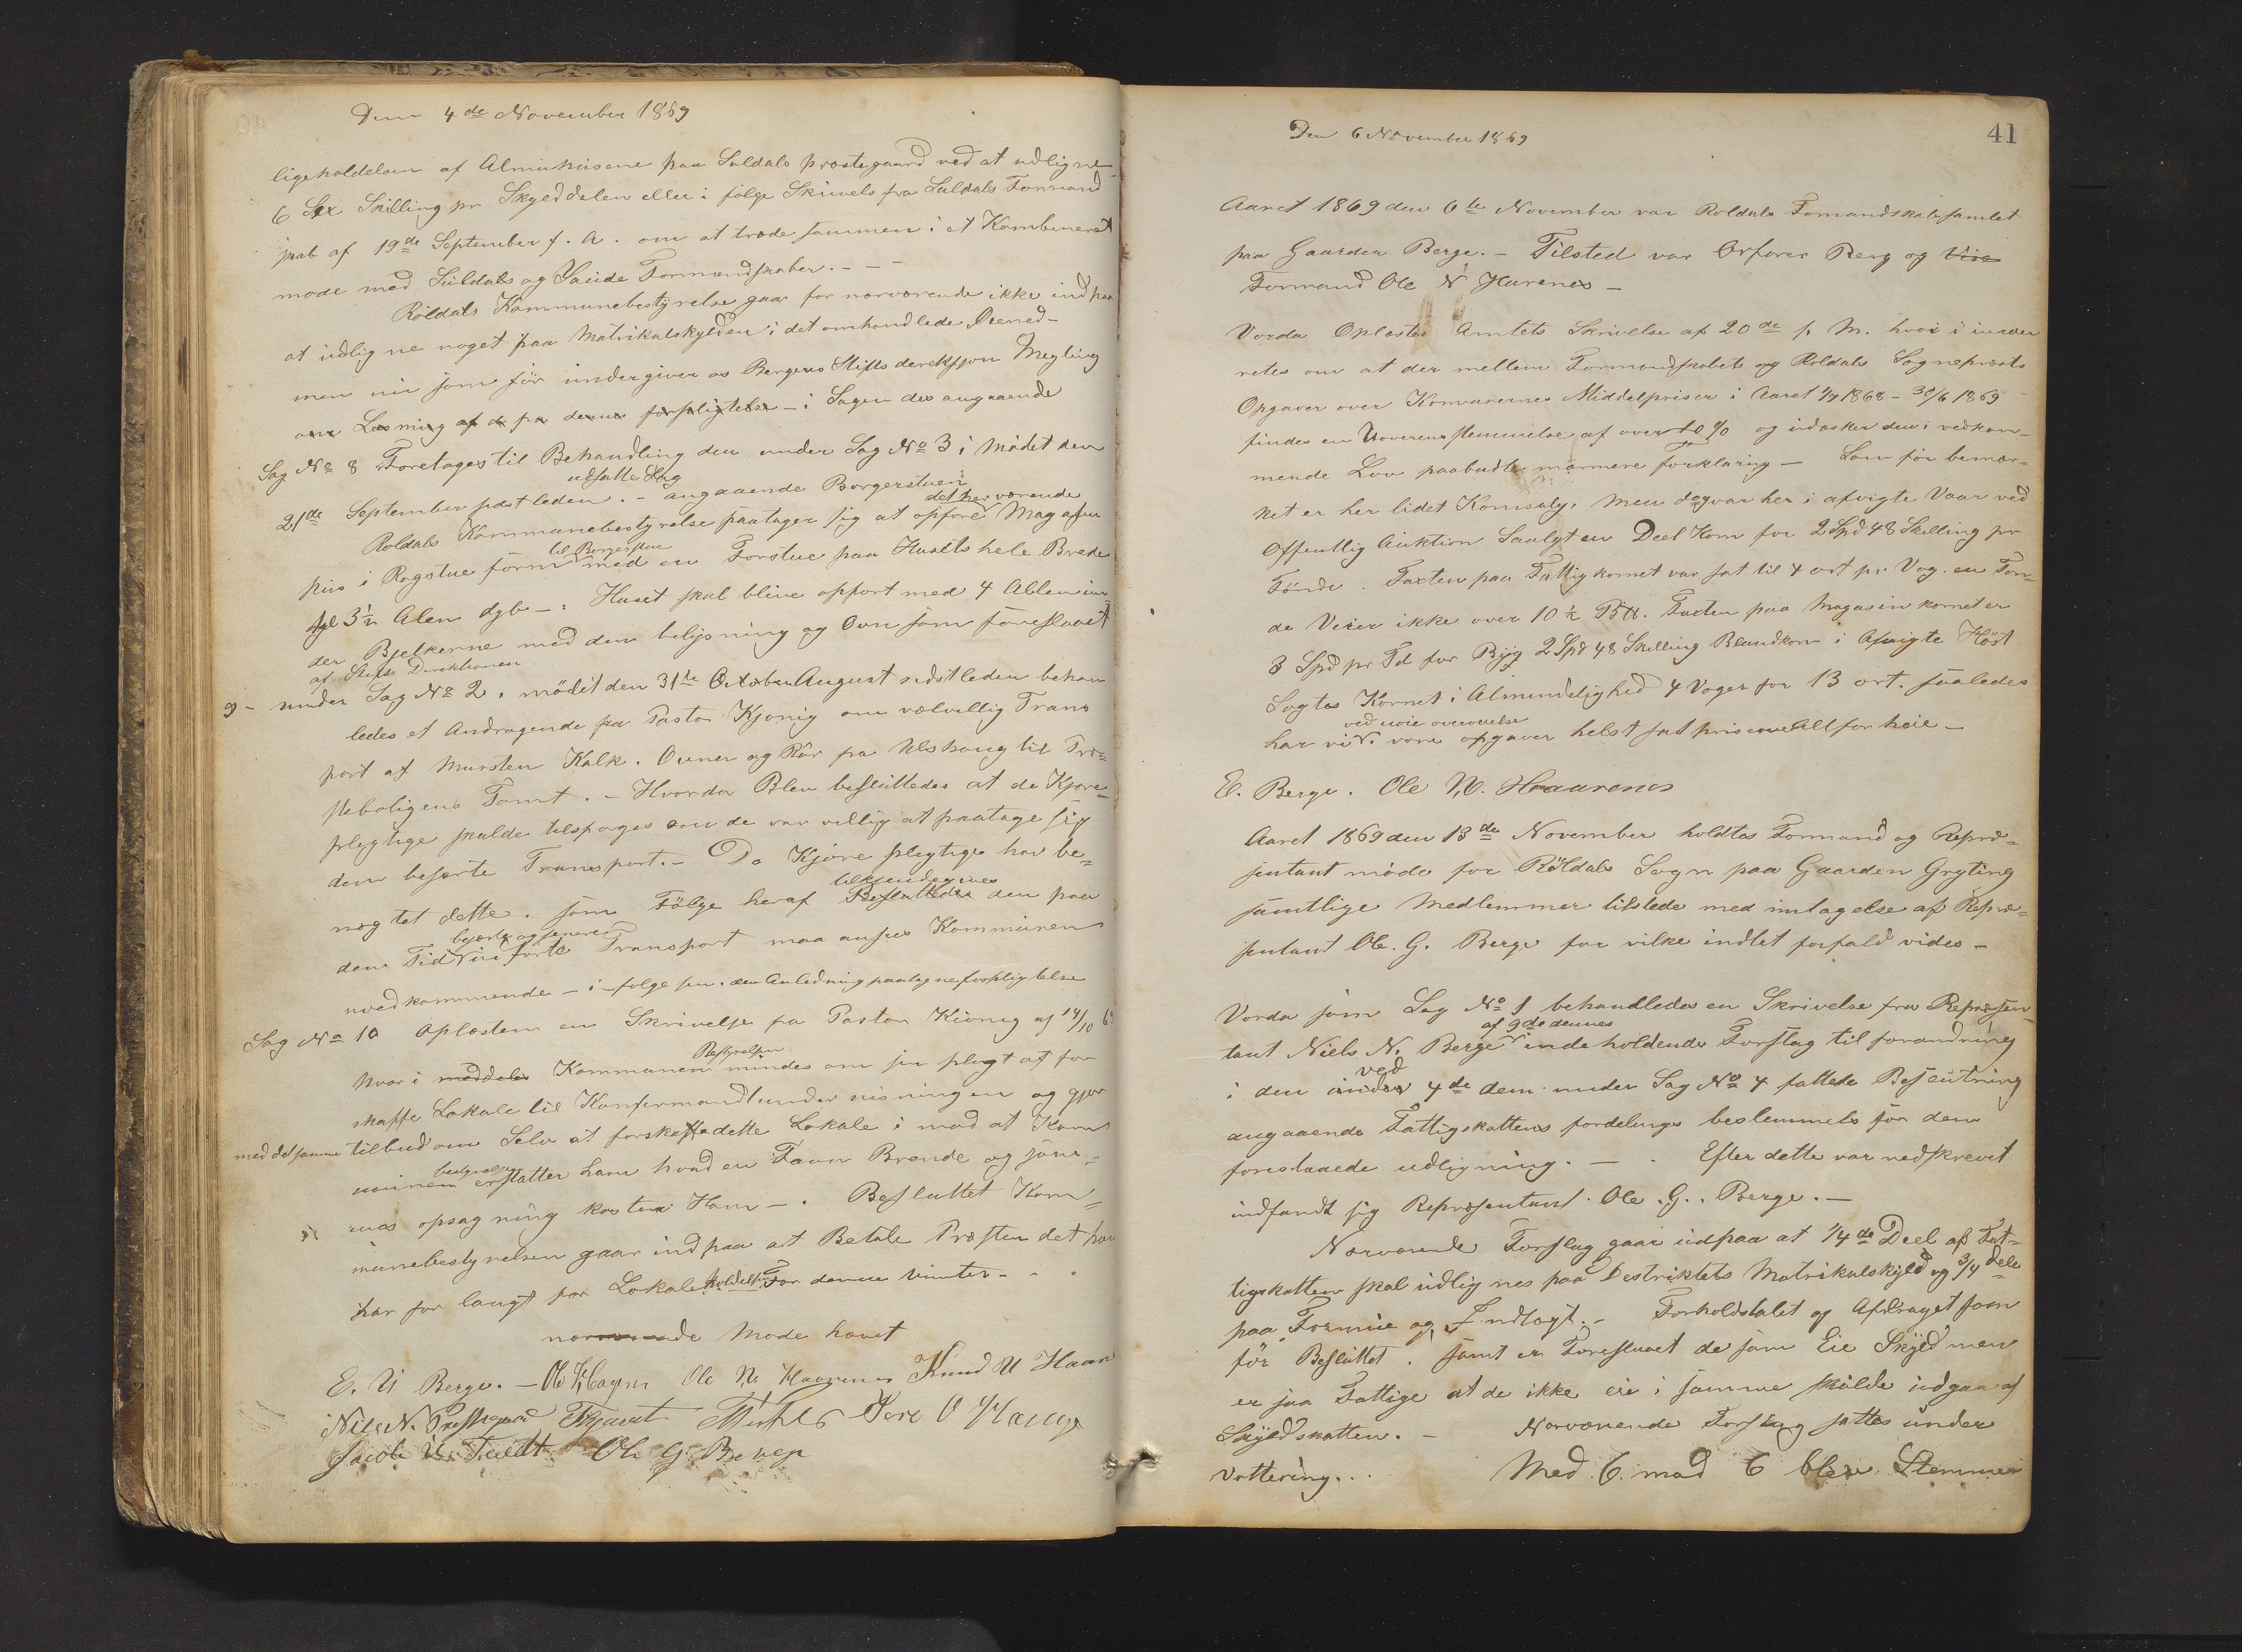 Den 4de November 1869
ligeholdelsen af Almuhusene paa Suldals prostegaard ved at udligne
6 Sex Skilling pr Skylddalen eller i følge Skivels fra Suldals Formand
skab af 19de September f. A. om at træde sammen i et Kombineret
møde med Suldals og Saude Formandskaber. - - -
Røldals Kommunebestyrelse gaar for nærværende ikke ind paa
at udligne noget paa Matrikulskylden i det omhandlede Øiened-
men nu som før undergiver os Bergens Stifts derektsjon Megling
i Sagen des angaaende
Sag No 8 Foretages til Behandling den under Sag No 3 i Mødet den
udsatte Sag
21de September sidst leden. - angaaende Borgerstuen
det her værende
Roldals Kommunebestyrelse paatager sig at opføre Magasin
til Borgerstue
hus i Røgstue form med en Forstue paa Husets hele Brede
3½ Alen dyb - : Huset skal blive opført med 4 Allen un
der Bjelkerne med den belysning og Ovn som foreslaaet
af Stifts Direktionen
9 - under Sag No 2. mødet den 31te October August sidstleden behan
ledes et Andragende fra Pastor Kjønig om velvillig Trans
port af Mursten Kalk. Ovner og Rør fra Ulshaug til Præ-
steboligens Tomt. - Hvorda Blev besluttedes at de Kjøre-
plegtige skulde tilspørges om de var villig at paatage sig
den besørte Transport. - Da Kjøre plegtige har be-
tilkjendegives
nægtet dette. som Følge heraf Besluttedes den paa
begærte og senere
den Tid førte Transport maa anses Kommunen
uvedkommende - i følge sin den Anledning paatagne forpligtelse
Sag No 10 Oplæsten en Skrivelse fra Pastor Kiønig af 14/10 69
Bestyrelsen
hvor i meddeles Kommunen mindes om sin plegt at for
skaffe Lokale til Konfermandtundervisningen og gjør
med det samme tilbud om Selv at forskaffe dette Lokale i mod at Kom
bestyrelsen
munen erstatter ham hvad en Favn Brænde og
nes opsagning koster Ham - . Besluttet Kom-
munebestyrelsen gaar ind paa at Betale Presten det han
har for langt for Lokale holdelse For denne Vinter - .
nærværende Møde hævet
E. U Berge. - Ole N. Haarenes Knud U Haare
Niels N. Prestegaard Iver O Hauge
Jacob U. Tvedt Ole G. Berge
Den 6 November 1869
41
Aaret 1869 den 6te November var Roldals Formandskab samlet
paa Gaarden Berge. - Tilsted var Orfører Berg og Vise
Formand Ole N Harenes -
Vorda Oplæstes Amtets Skrivelse af 20de f. M. hvor i inder
retes om at der mellem Formandskabets og Roldals Sognepræsts
Opgaver over Kornvarernes Middelpriser i Aaret 1/7 1868 - 30/6 1869
findes en Uoverensstemmelse af over 10 % og udæsker den i vedkom-
mende Lov paabudte nærmere forklaring - Som før bemær-
ket er her lidet Kornsalg, Men dog var her i afvigte Vaar ved
Offentlig Auktion Saalgt en Deel Korn for 2 Spd 48 Skilling pr
Tønde. Taxten paa Fattigkornet var sat til 4 ort pr Vog. en Tøn-
de Veier ikke over 10 ½ B℔. Taxten paa Magasin kornet er
3 Spd pr Td for Byg 2 Spd 48 Skilling Blandkorn i Afvigte Høst
Sagtes Kornet i Almindelighed 4 Voger for 13 ort. saaledes
ved nøie overveielse
har vi i vore opgaver helst sat priserne Alt for høie -
E. Berge. Ole N. Haarenes
Aaret 1869 den 13de November holdtes Formand og Repræ-
sentant møde for Røldals Sogn paa Gaarden Gryting
samtlige Medlemmer tilstede med intagelse af Repræ-
sentant Ole. G. Berge for vilke indtet forfald vides -
Vorda som Sag No 1 behandledes en Skrivelse fra Repræsen-
af 9de dennes
tant Niels N. Berge indeholdende Forslag til forandring
ved
i den under 4de dem under Sag No 4 fattede Beslutning
angaaende Fattigskattens fordelings bestemmels før den
foreslaaede udligning. - . Efter dette var nedskrevet
indfandt sig Repræsentant Ole. G. Berge. -
Nærværende Forslag gaar udpaa at 1/4de Deel af Fat-
tigskatten skal udlignes paa Destriktets Matrikulskyld og 3/4 dele
paa Formue og Indtægt. - Forholdstalet og Afdraget som
før Besluttet. samt er Foreslaaet de som Eie Skyld men
er saa Fattige at de ikke eie i samme skulde udgaa af
Skyldskatten. - Nærværende Forslag sattes under
Vottering. . . Med 6 mod 6 blev Stemmer